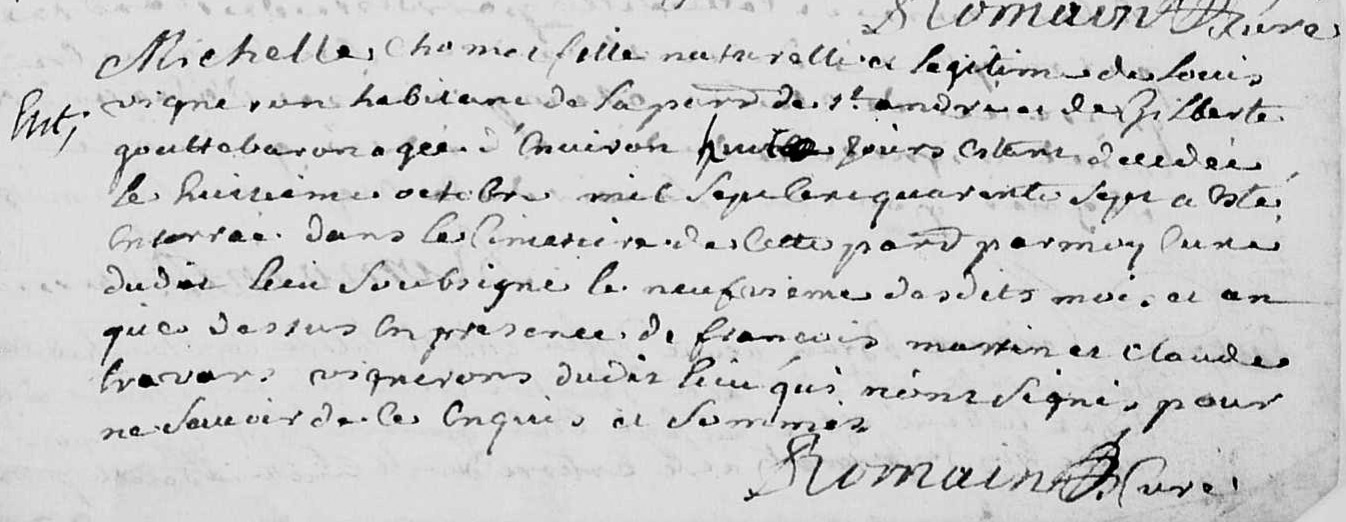 Romain Curé
Michelle Chomet fille naturelle et legitime de Louis
Ent;
vigneron habitant de la parr de st andré et de Gilberte
gouttebaron agée d'environ huit jours estant décedée
le huitieme octobre mil sept cent quarente sept a esté
enterrée dans le Cimetiere de cette parr par moy Curé
dudit lieu soubsigné le neufvieme desdits mois et an
que dessus en presence de francois martin et claude
vignerons dudit lieu qui n'ont signés pour
ne savoir de ce enquis et sommez
Romain Curé